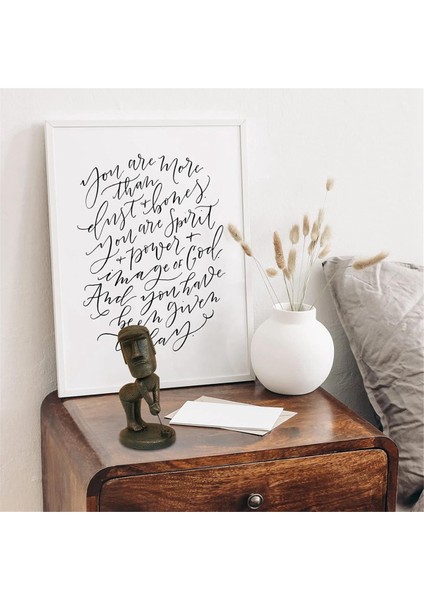 You are more
than
dust + bones.
You are spirit
+ power +
image of God.
And you have
been given